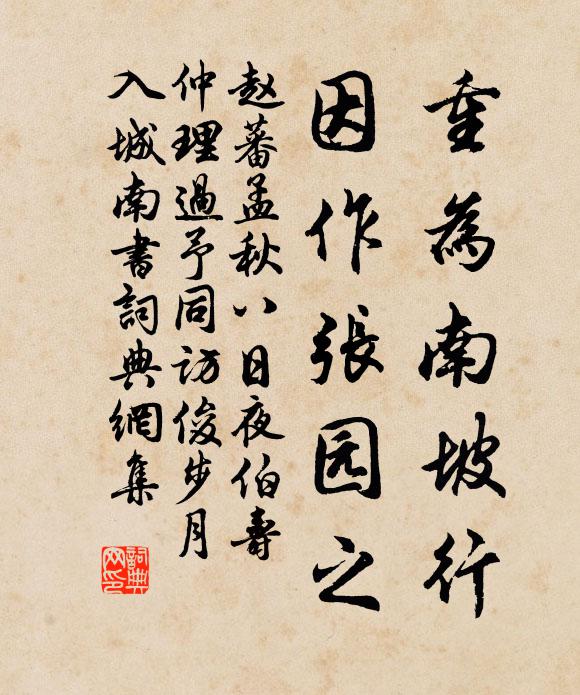 重為南坡行
因作張园之
赵蕃孟秋八日夜伯壽
仲理過予同访俊步月
入城南書詞典網集
詞典网印